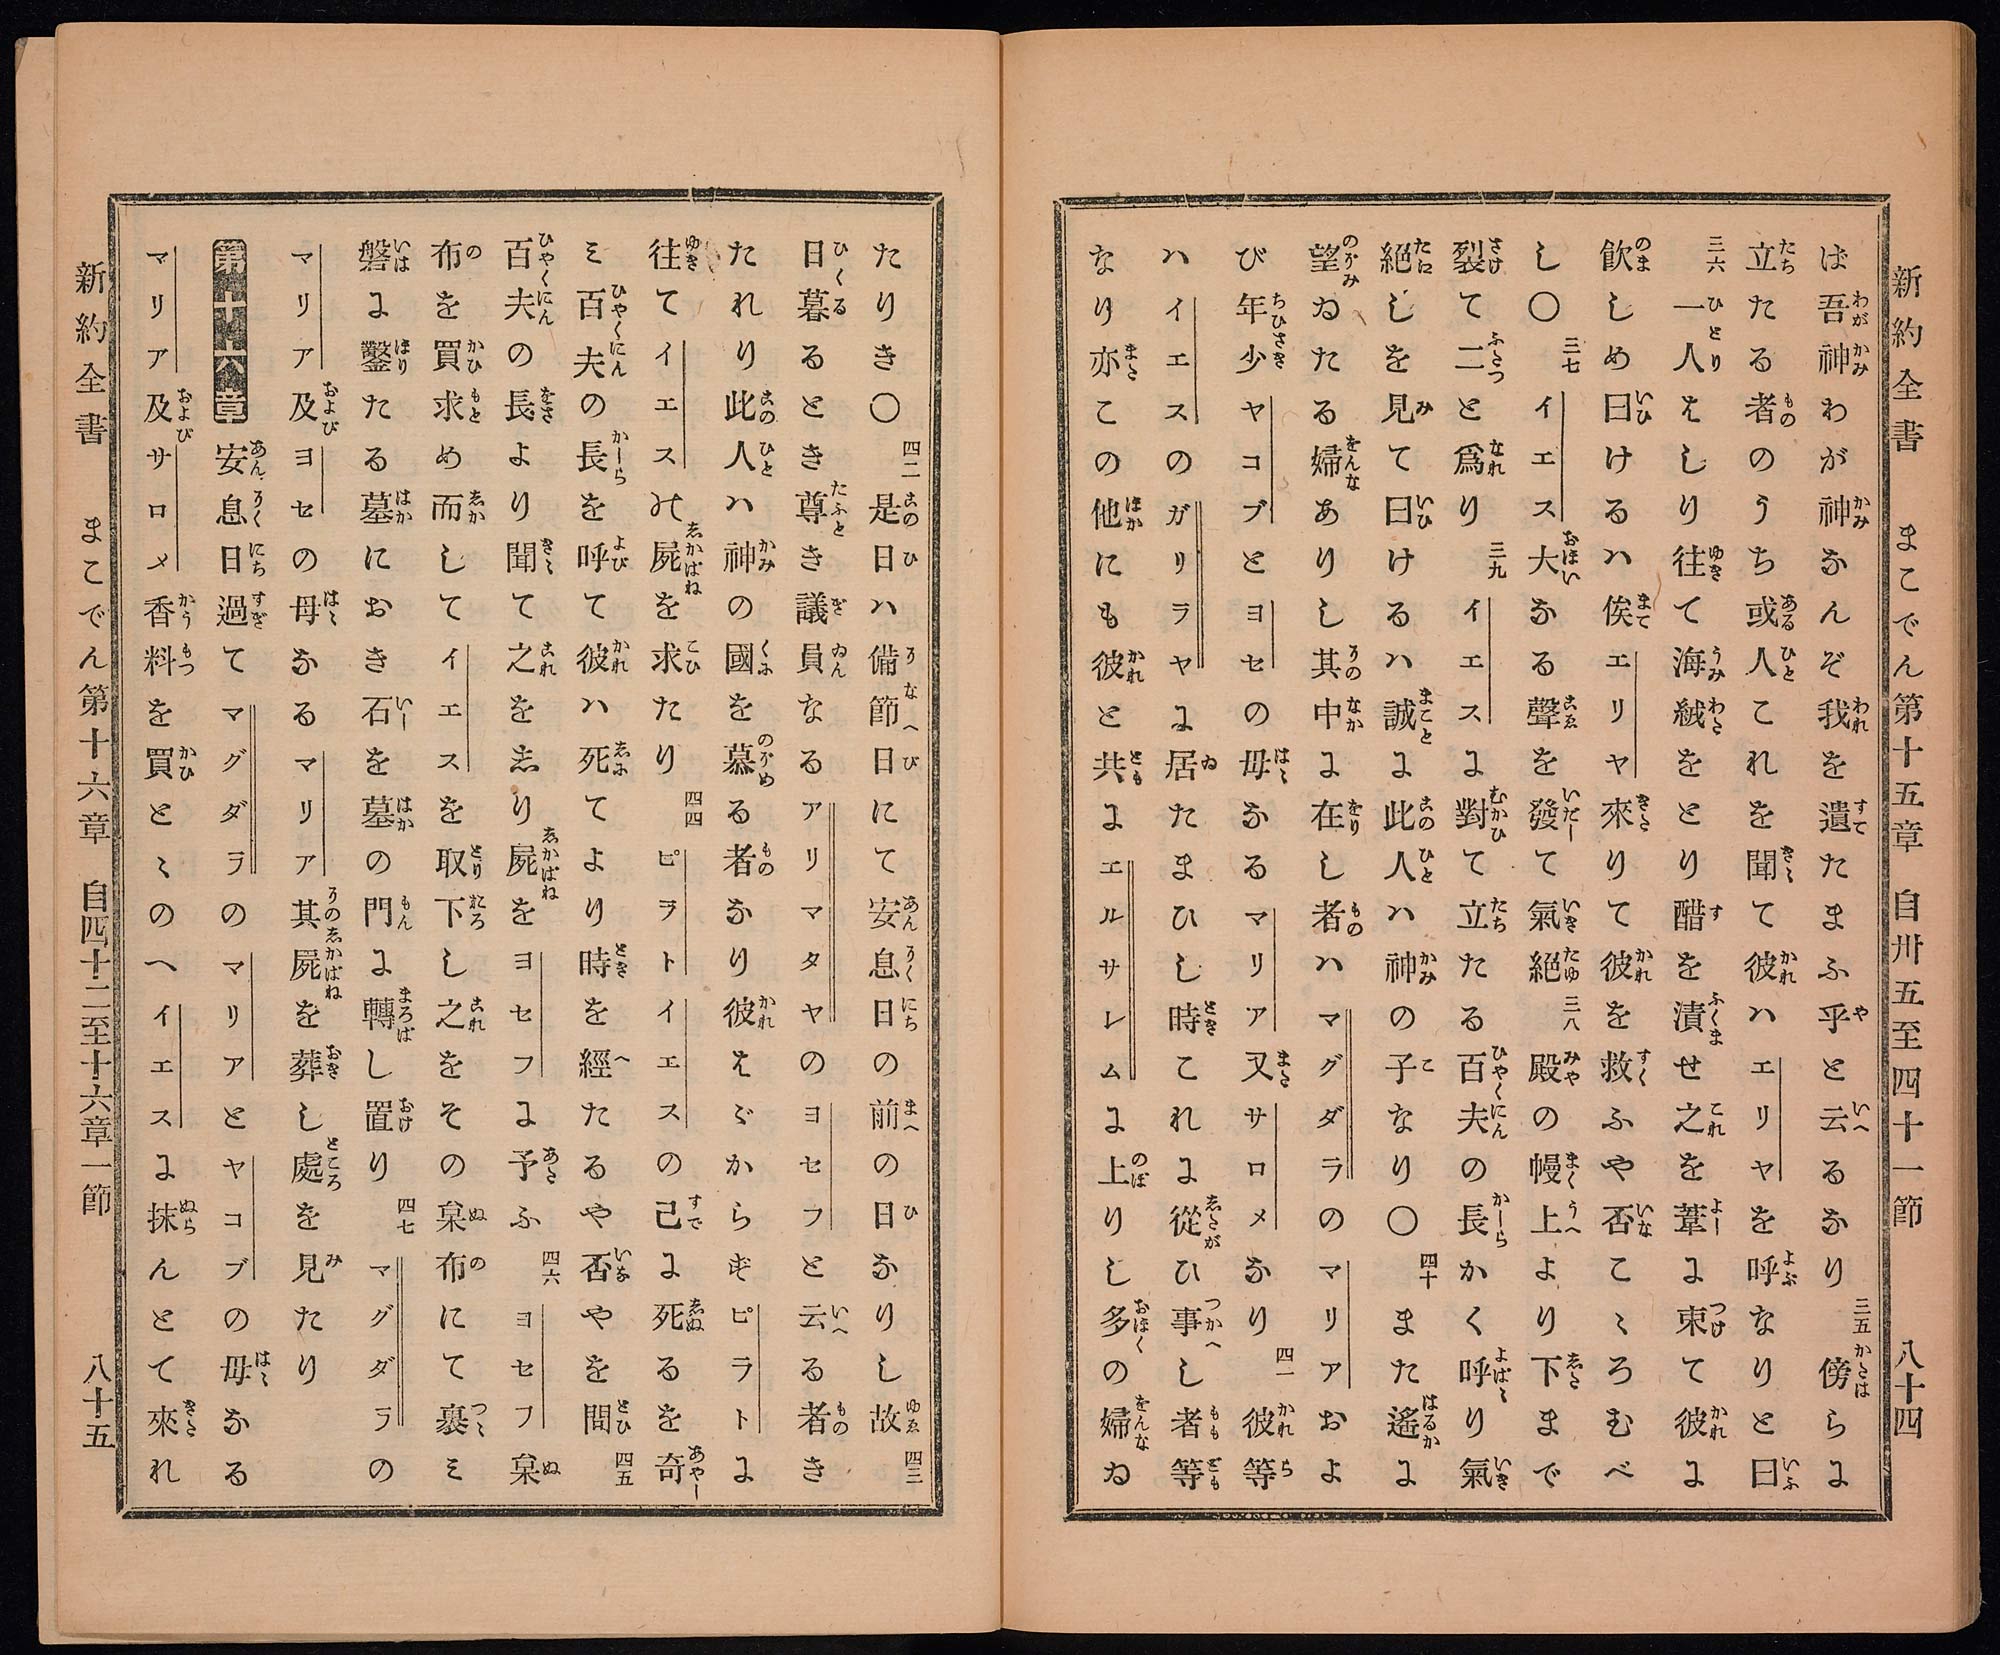 新約全書　まこでん第十五章　自卅五至四十一節　八十四
ば吾神わが神なんぞ我を遺たまふ乎と云るなり三五傍らに
立たる者のうち或人これを聞て彼ハエリヤを呼なりと曰
三六一人はしり往て海絨をとり醋を漬せ之を葦に束て彼に
飮しめ曰けるハ俟エリヤ來りて彼を救ふや否こゝろむべ
し〇三七イエス大なる聲を發て氣絕三八殿の幔上より下まで
裂て二と爲り三九イエスに對て立たる百夫の長かく呼り氣
絕しを見て曰けるハ誠に此人ハ神の子なり〇四十また遙に
望ゐたる婦ありし其中に在し者ハマグダラのマリアおよ
び年少ヤコブとヨセの母なるマリア又サロメなり四一彼等
ハイエスのガリラヤに居たまひし時これに從ひ事し者等
なり亦この他にも彼と共にエルサレムに上りし多の婦ゐ
たりき〇四二是日ハ備節日にて安息日の前の日なりし故四三
日暮るとき尊き議員なるアリマタヤのヨセフと云る者き
たれり此人ハ神の國を慕る者なり彼はゞからずピラトに
往てイエスの屍を求たり四四ピラトイエスの已に死るを奇
ミ百夫の長を呼て彼ハ死てより時を經たるや否やを問四五
百夫の長より聞て之をしり屍をヨセフに予ふ四六ヨセフ枲
布を買求め而してイエスを取下し之をその枲布にて裹ミ
磐に鑿たる墓におき石を墓の門に轉し置り四七マグダラの
マリア及ヨセの母なるマリア其屍を葬し處を見たり
第十六章　安息日過てマグダラのマリアとヤコブの母なる
マリア及サロメ香料を買とゝのへイエスに抹んとて來れ
新約全書　まこでん第十六章　自四十二至十六章一節　八十五